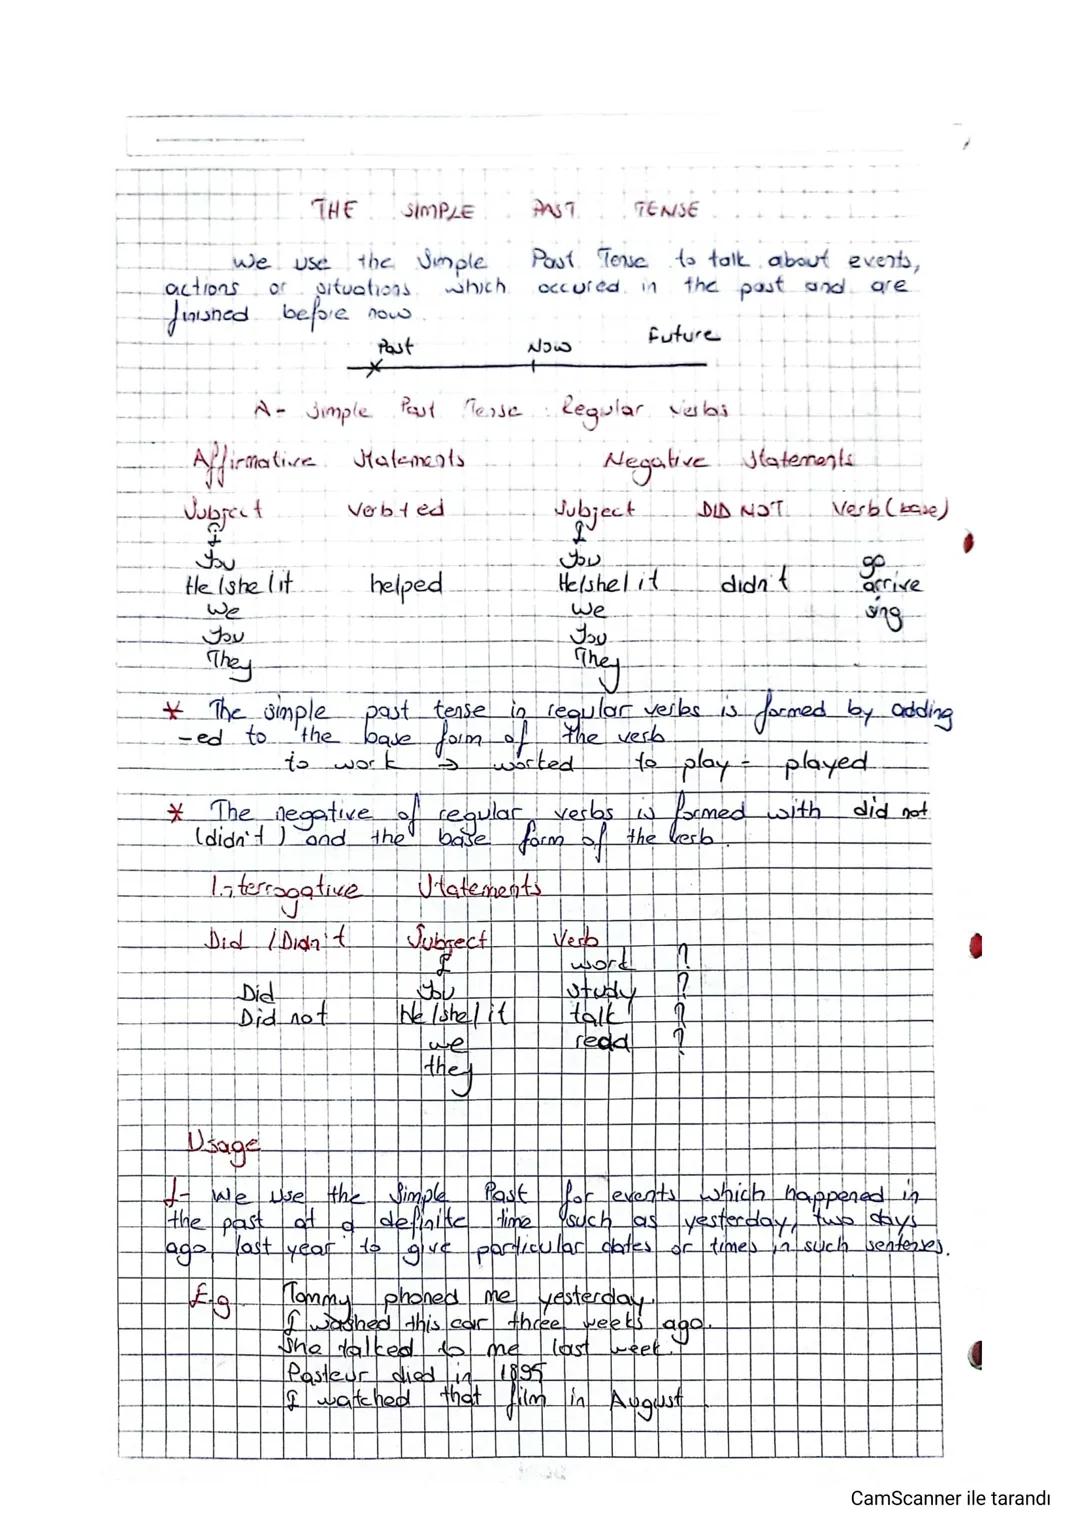 THE SIMPLE PAST TENSE
We use the Simple Past Tense to talk about events,
actions or situations which occured in the past and are
finished before now.
Past Now Future
A- Simple Past Tense : Regular verbs
Affirmative Statements Negative Statements
Subject Verb + ed Subject DID NOT Verb (base)
I I
You You go
He/she/it helped He/she/it didn't arrive
We We sing
You You
They They
* The simple past tense in regular verbs is formed by adding
-ed to the base form of the verb
to work → worked to play = played
* The negative of regular verbs is formed with did not
(didn't) and the base form of the verb.
Interrogative Statements
Did / Didn't Subject Verb
I word ?
Did You study ?
Did not He/she/it talk ?
we read ?
they
Usage
1- We use the Simple Past for events which happened in
the past at a definite time such as yesterday, two days
ago, last year to give particular dates or times in such sentenses.
E.g Tommy phoned me yesterday.
I washed this car three weeks ago.
She talked to me last week.
Pasteur died in 1895
I watched that film in August
CamScanner ile tarandı